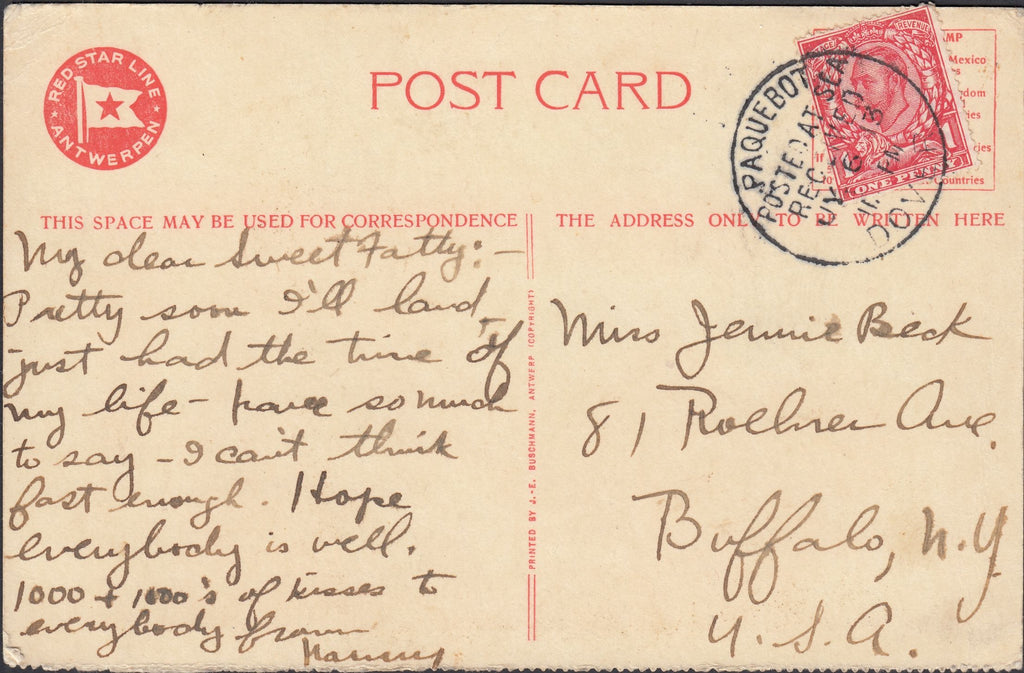 RED STAR LINE
ANTWERPEN
POST CARD
PAQUEBOT
POSTED AT SEA
REC'D
13
DOVER
REVENUE
ONE PENNY
MP
Mexico
s
dom
ies
If
cies
Countries
THIS SPACE MAY BE USED FOR CORRESPONDENCE
THE ADDRESS ONLY TO BE WRITTEN HERE
My dear Sweet Fatty:-
Pretty soon I'll land,
just had the time of
my life - have so much
to say - I can't think
fast enough. Hope
everybody is well.
1000 + 1000's of kisses to
everybody from
PRINTED BY J.-E. BUSCHMANN, ANTWERP (COPYRIGHT)
Miss Jennie Beck
81 Roehrer Ave.
Buffalo, N.Y.
U.S.A.